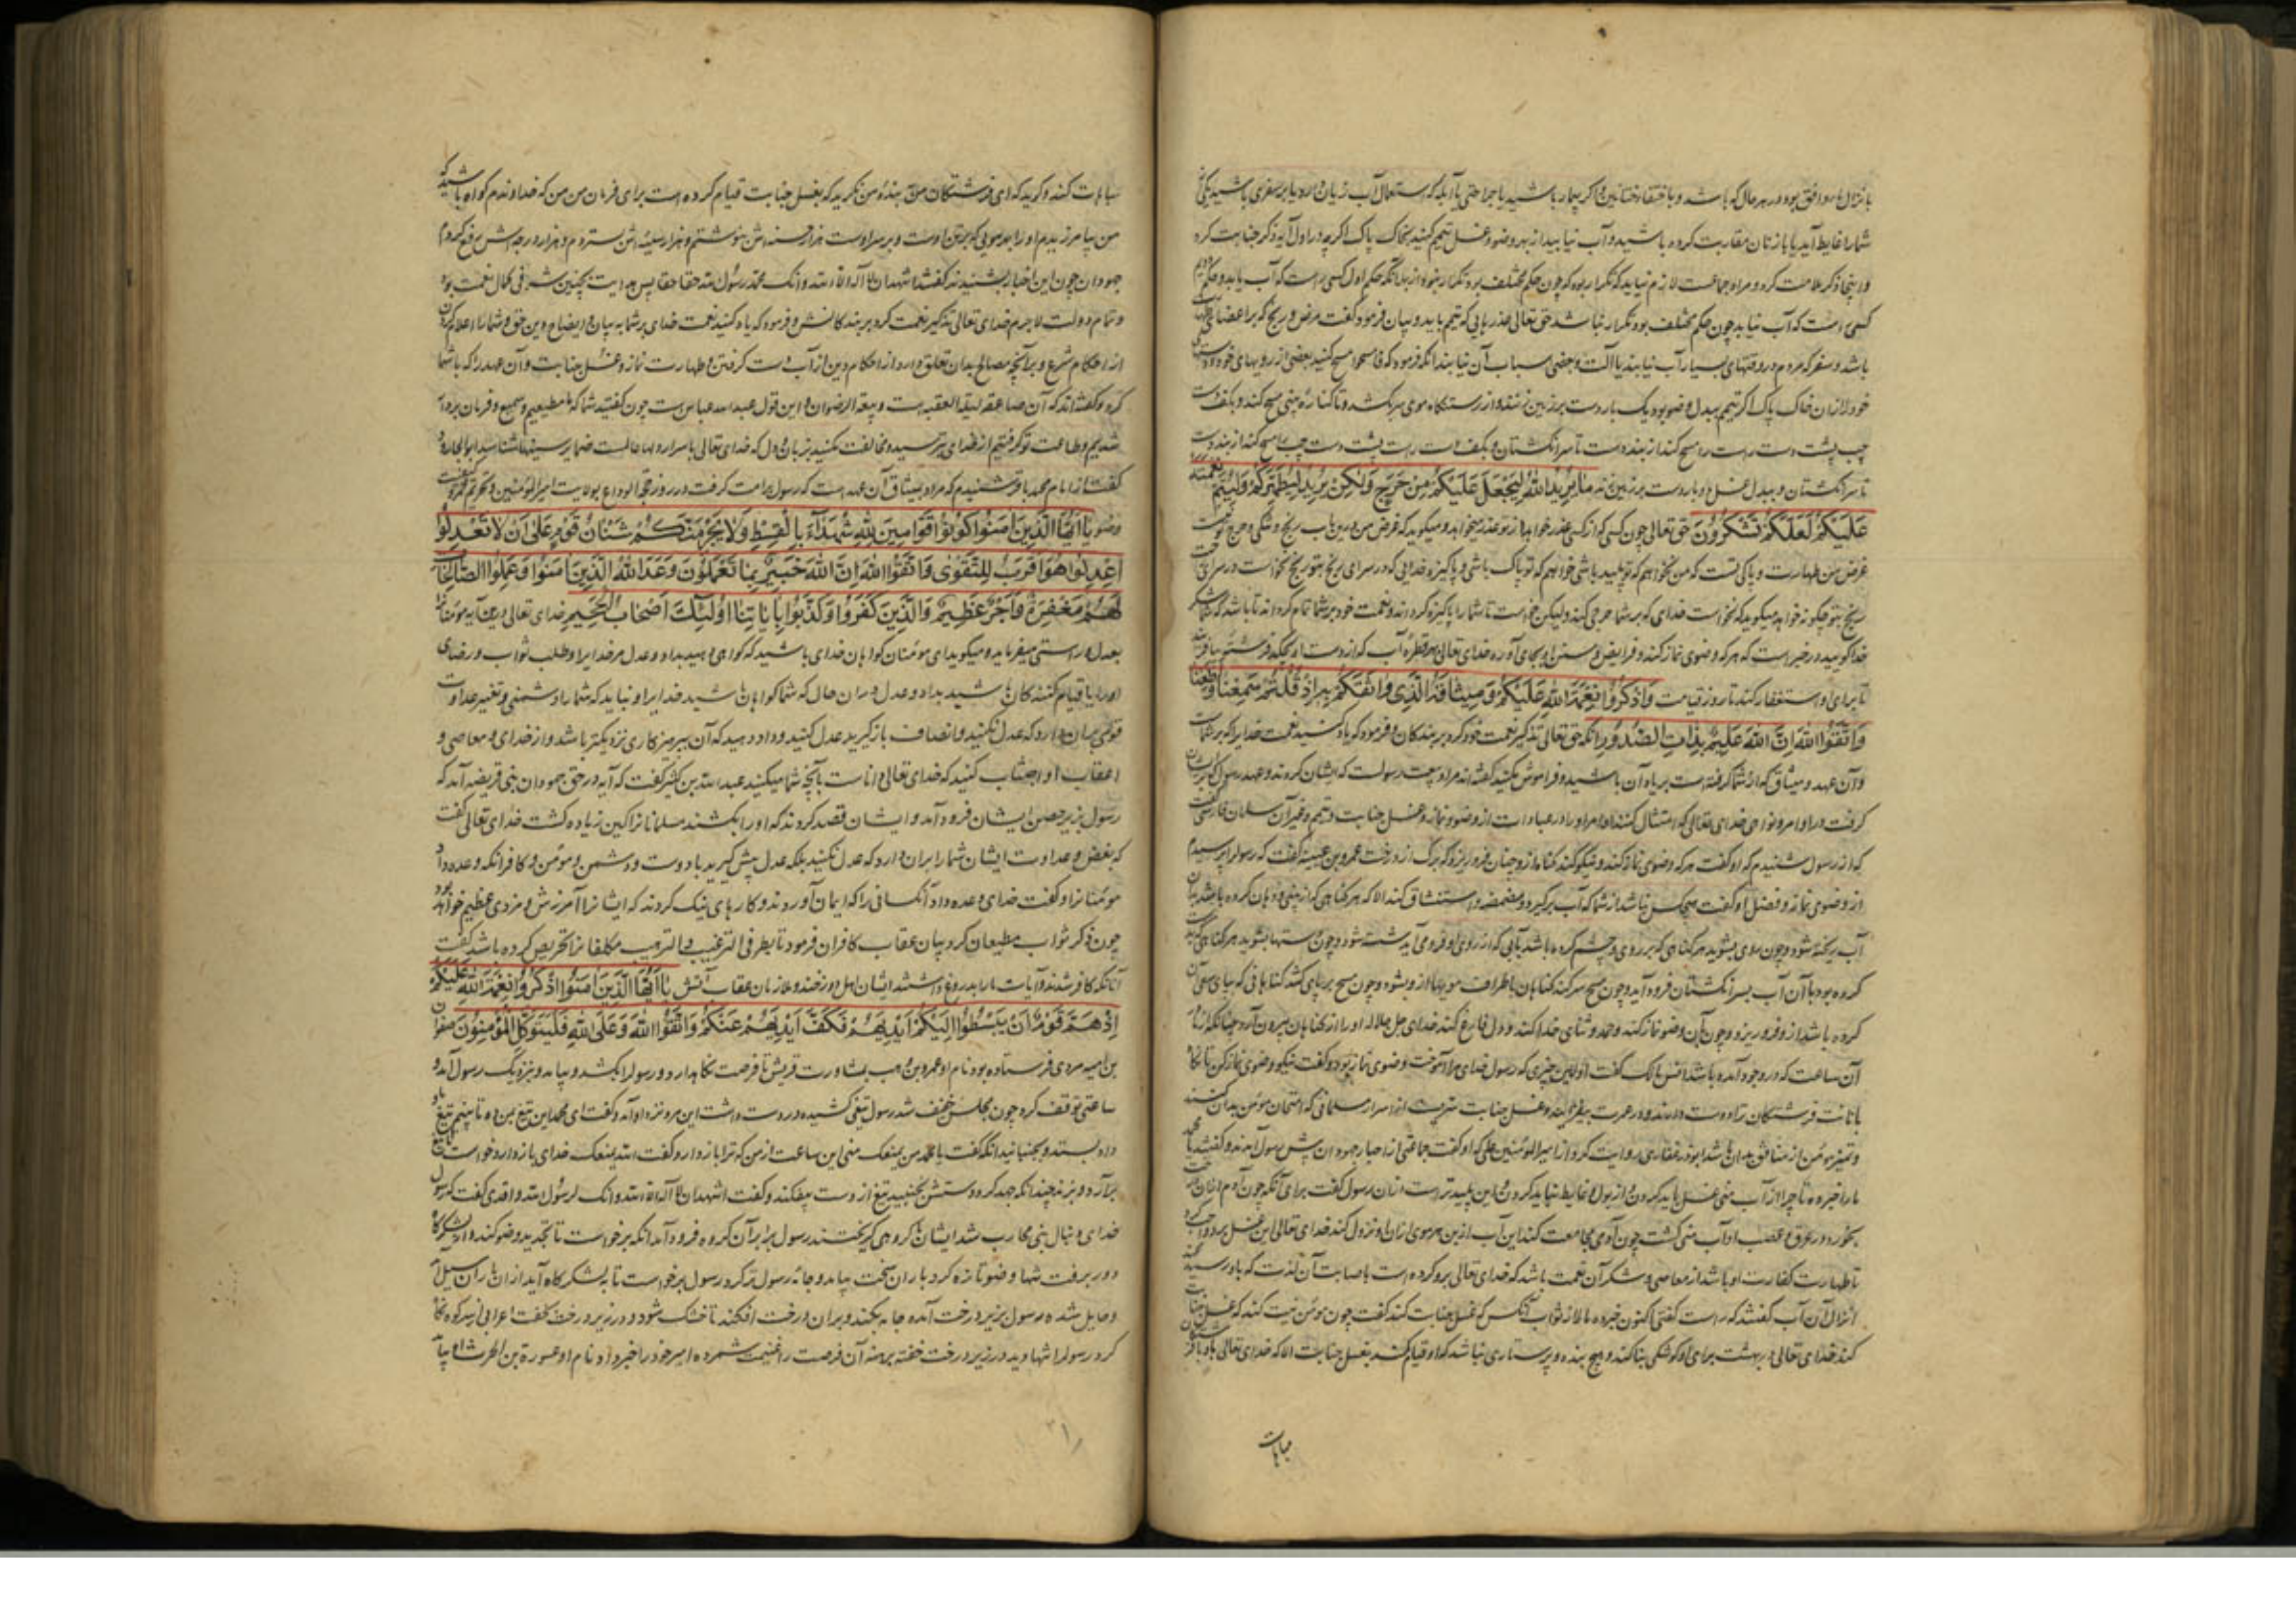 شمارا غایط آید یا با زنان مقاربت کرده باشید و آب نیابید از بهر وضو و غسل تیمم کنید بخاک پاک اگر چه در اول آیه ذکر جنابت کرد
کسی است که آب نیابد چون حکم مختلف بود تکرار نباشد حق تعالی
باشد و سفر که مردم در وقتهای بسیار آب نیابند یا آلت و بعضی اسباب آن نیابند آنکه فرمود که فامسحوا مسح کنید بعضی از رویهای خود و
خود را از ان خاک پاک اگر تیمم بدل وضو بود یک بار دست بر زمین زنند و از رستنگاه موی سر تا کناره بینی مسح کند و بکف
چپ پشت دست راست را مسح کند از بند دست تا سر انگشتان و بکف دست راست پشت دست چپ را مسح کند از بند دست
تا سر انگشتان و بدل غسل دو بار دست بر زمین زند مَا يُرِيدُ اللَّهُ لِيَجْعَلَ عَلَيْكُمْ مِنْ حَرَجٍ وَلَكِنْ يُرِيدُ لِيُطَهِّرَكُمْ وَلِيُتِمَّ نِعْمَتَهُ
عَلَيْكُمْ لَعَلَّكُمْ تَشْكُرُونَ حق تعالی چون کسی که از کسی عذر خواهد از تو عذر میخواهد و میگوید که غرض من درین باب رنج و تنگی و حرج تو نیست
غرض من طهارت و پاکی تست که من نخواهم که تو پلید باشی خواهم که تو پاک باشی و پاکیزه خدایی که در سرای رنج بتو رنج نخواست در سرای
رنج بتو چگونه خواهد میگوید که نخواست خدای که بر شما حرجی کند و لیکن خواست تا شما را پاکیزه گرداند و نعمت خود بر شما تمام گرداند تا باشد که شما شکر
خدا گویید در خبر است که هر که وضوی نماز کند و فرایض و سنن او بجای آورد خدای تعالی بهر قطره آب که از دست او بچکد فرشته بیافریند
تا برای او استغفار کند تا روز قیامت وَاذْكُرُوا نِعْمَةَ اللَّهِ عَلَيْكُمْ وَمِيثَاقَهُ الَّذِي وَاثَقَكُمْ بِهِ إِذْ قُلْتُمْ سَمِعْنَا وَأَطَعْنَا
وَاتَّقُوا اللَّهَ إِنَّ اللَّهَ عَلِيمٌ بِذَاتِ الصُّدُورِ آنکه حق تعالی تذکیر نعمت خود کرد بر بندگان و فرمود که یاد کنید نعمت خدایرا که بر شماست
و آن عهد و میثاق که از شما گرفته است بر یاد آن باشید و فراموش مکنید گفته اند مراد بیعت رسولست که ایشان کردند و عهد رسول که بر ایشان
گرفت در اوامر و نواهی خدای تعالی که امتثال کنند اوامر او را در عبادات از وضو و نماز و غسل جنابت و تیمم و غیر آن سلمان فارسی گفت
که از رسول شنیدم که او گفت هر که وضوی نماز کند و نیکو کند گناه از و چنان فرو ریزد که برگ از درخت عمرو بن عبسه گفت که رسولرا پرسیدم
از وضوی نماز و فضل او گفت هیچ کس نباشد از شما که آب برگیرد و مضمضه و استنشاق کند الا که هر گناهی که از بینی و دهان کرده باشد بدان
آب ریخته شود و چون روی بشوید هر گناهی که بر روی و چشم کرده باشد بآبی که از روی او فرو می آید شسته شود و چون دستها بشوید هر گناهی که بدست
کرده بود با آن آب بسر انگشتان فرود آید و چون مسح سر کند گناهان باطراف مویها از و بشود و چون مسح بر پای کشد گناهانی که بپای سعی آن
کرده باشد از و فرو ریزد و چون بآن وضو نماز کند و حمد و ثنای خدا کند و دل فارغ کند خدای جل جلاله او را از گناهان بیرون آرد چنانکه از مادر
آن ساعت که در وجود آمده باشد انس مالک گفت اولین چیزی که رسول خدای مرا آموخت وضوی نماز بود و گفت نیکو وضوی نماز کن تا نگاه
و تمیز مؤمن از منافق بدان باشد ابوذر غفاری روایت کرد از امیر المؤمنین علی که او گفت جماعتی از احبار جهودان پیش رسول آمدند و گفتند یا محمد
ما را خبر ده تا چرا از آب منی غسل باید کردن و از بول و غایط نباید کردن و این پلید تر است از ان رسول گفت برای آنکه چون آدم از ان درخت
بخورد در عرق و عصب او آب منی گشت چون آدمی مجامعت کند این آب از بن هر موی از ان او نزول کند خدای تعالی این غسل برو واجب کرد
تا طهارت کفارت او باشد از معاصی و شکر آن نعمت باشد که خدای تعالی برو کرده است باصابت آن لذت که باو رسید
انزال آن آب گفتند که راست گفتی اکنون خبر ده ما را از ثواب آنکس که غسل جنابت کند گفت چون مؤمن نیت کند که غسل جنابت
کند خدای تعالی در بهشت برای او کوشکی بنا کند و هیچ بنده و پرستاری نباشد که او قیام کند بغسل جنابت الا که خدای تعالی باو با فرشتگان
مباهات
مباهات کند و گوید که ای فرشتگان من بنده من نگرید که بغسل جنابت قیام کرده است برای فرمان من من که خداوندم گواه باشید که
من بیامرزیدم او را بهر مویی که بر تن اوست و بر سر اوست هزار حسنه اش بنوشتم و هزار سیئه اش بستردم و هزار درجه اش رفع کردم
جهودان چون این اخبار بشنیدند گفتند اشهد ان لا اله الا الله و انک محمد رسول الله حقا حقا پس هدایت بچنین شرفی کمال نعمت بود
و تمام دولت لاجرم خدای تعالی تذکیر نعمت کرد بر بندگانش و فرمود که یاد کنید نعمت خدای بر شما به بیان و ایضاح دین حق و شما را اعلام کردن
از احکام شرع و بر آنچه مصالح بدان تعلق دارد از احکام دین از آب دست گرفتن و طهارت نماز و غسل جنابت و آن عهد را که با شما
کرد و گفته اند که آن صاعقه لیلة العقبه است و بیعة الرضوان و این قول عبد الله عباس است چون گفتید شما که ما مطیعیم و سمیع و فرمان بردار
شدیم و طاعت تو گرفتیم از خدای بترسید و مخالفت مکنید بزبان و دل که خدای تعالی باسرار دلها عالمست ضمایر سینها شناسد ابو الجارود
گفت از امام محمد باقر شنیدم که مراد بمیثاق آن عهد است که رسول بر امت گرفت در روز حجة الوداع بولایت امیر المؤمنین و تحریم خمر و کیفیت
وضو يَا أَيُّهَا الَّذِينَ آمَنُوا كُونُوا قَوَّامِينَ لِلَّهِ شُهَدَاءَ بِالْقِسْطِ وَلَا يَجْرِمَنَّكُمْ شَنَآنُ قَوْمٍ عَلَى أَنْ لَا تَعْدِلُوا
اعْدِلُوا هُوَ أَقْرَبُ لِلتَّقْوَى وَاتَّقُوا اللَّهَ إِنَّ اللَّهَ خَبِيرٌ بِمَا تَعْمَلُونَ وَعَدَ اللَّهُ الَّذِينَ آمَنُوا وَعَمِلُوا الصَّالِحَاتِ
لَهُمْ مَغْفِرَةٌ وَأَجْرٌ عَظِيمٌ وَالَّذِينَ كَفَرُوا وَكَذَّبُوا بِآيَاتِنَا أُولَئِكَ أَصْحَابُ الْجَحِيمِ خدای تعالی درین آیه مؤمنانرا
بعدل و راستی میفرماید و میگوید ای مؤمنان گواهان خدای باشید که گواهی دهید بداد و عدل مر خدایرا و طلب ثواب و رضای
او را یا قیام کنندگان باشید بداد و عدل در ان حال که شما گواهان باشید خدایرا و نباید که شما را دشمنی و تغیر عداوت
قومی بران دارد که عدل نکنید و انصاف باز گیرید عدل کنید و داد دهید که آن بپرهیزکاری نزدیکتر باشد و از خدای و معاصی و
اعقاب او اجتناب کنید که خدای تعالی داناست بآنچه شما میکنید عبد الله بن کثیر گفت که آیه در حق جهودان بنی قریضه آمد که
رسول بزیر حصن ایشان فرود آمد و ایشان قصد کردند که او را بکشند مسلمانانرا کین زیاده گشت خدای تعالی گفت
که بغض و عداوت ایشان شما را بران دارد که عدل نکنید بلکه عدل پیش گیرید با دوست و دشمن و مؤمن و کافر آنکه وعده داد
مؤمنانرا و گفت خدای وعده داد آنکسانی را که ایمان آوردند و کارهای نیک کردند که ایشانرا آمرزش و مزدی عظیم خواهد بود
چون ذکر ثواب مطیعان کرد بیان عقاب کافران فرمود تا بطرفی الترغیب و الترهیب مکلفانرا تحریص کرده باشد گفت
آنانکه کافر شدند و آیات ما را بدروغ داشتند ایشان اهل دوزخند و ملازمان عقاب آتش يَا أَيُّهَا الَّذِينَ آمَنُوا اذْكُرُوا نِعْمَةَ اللَّهِ عَلَيْكُمْ
إِذْ هَمَّ قَوْمٌ أَنْ يَبْسُطُوا إِلَيْكُمْ أَيْدِيَهُمْ فَكَفَّ أَيْدِيَهُمْ عَنْكُمْ وَاتَّقُوا اللَّهَ وَعَلَى اللَّهِ فَلْيَتَوَكَّلِ الْمُؤْمِنُونَ صفوان
بن امیه مردی فرستاده بود نام او عمرو بن وهب بمشاورت قریش تا فرصت نگاه دارد و رسولرا بکشد و بیامد و بنزدیک رسول آمد و
ساعتی توقف کرد چون مجلس خفیف شد رسول تیغی کشیده در دست داشت این مرد نزد او آمد و گفت ای محمد این تیغ بمن ده تا بینم تیغ باو
داد بستد و بجنبانید آنکه گفت یا محمد من یمنعک منی این ساعت از من که ترا باز دارد گفت الله یمنعک خدای باز دارد خواست تا تیغ
برآرد و بزند چندانکه جهد کرد دستش نجنبید تیغ از دست بیفکند و گفت اشهد ان لا اله الا الله و انک لرسول الله واقدی گفت که رسول
خدای دنبال بنی محارب شد ایشان بر کوهی گریختند رسول برابر آن کوه فرود آمد آنکه برخواست تا تجدید وضو کند و از لشکرگاه
دور برفت تنها وضو تازه کرد باران سخت بیامد و جامه رسول تر کرد رسول برخواست تا بلشکرگاه آید از ان باران سیل آمد
و حایل شده رسول بزیر درخت آمده جامه بکند و بر ان درخت افکند تا خشک شود و در زیر درخت بخفت اعرابی از سر کوه نگاه
کرد رسولرا تنها دید در زیر درخت خفته برهنه آن فرصت را غنیمت شمرده امیر خود را خبر داد نام او عسورة بن الحرث او بیامد